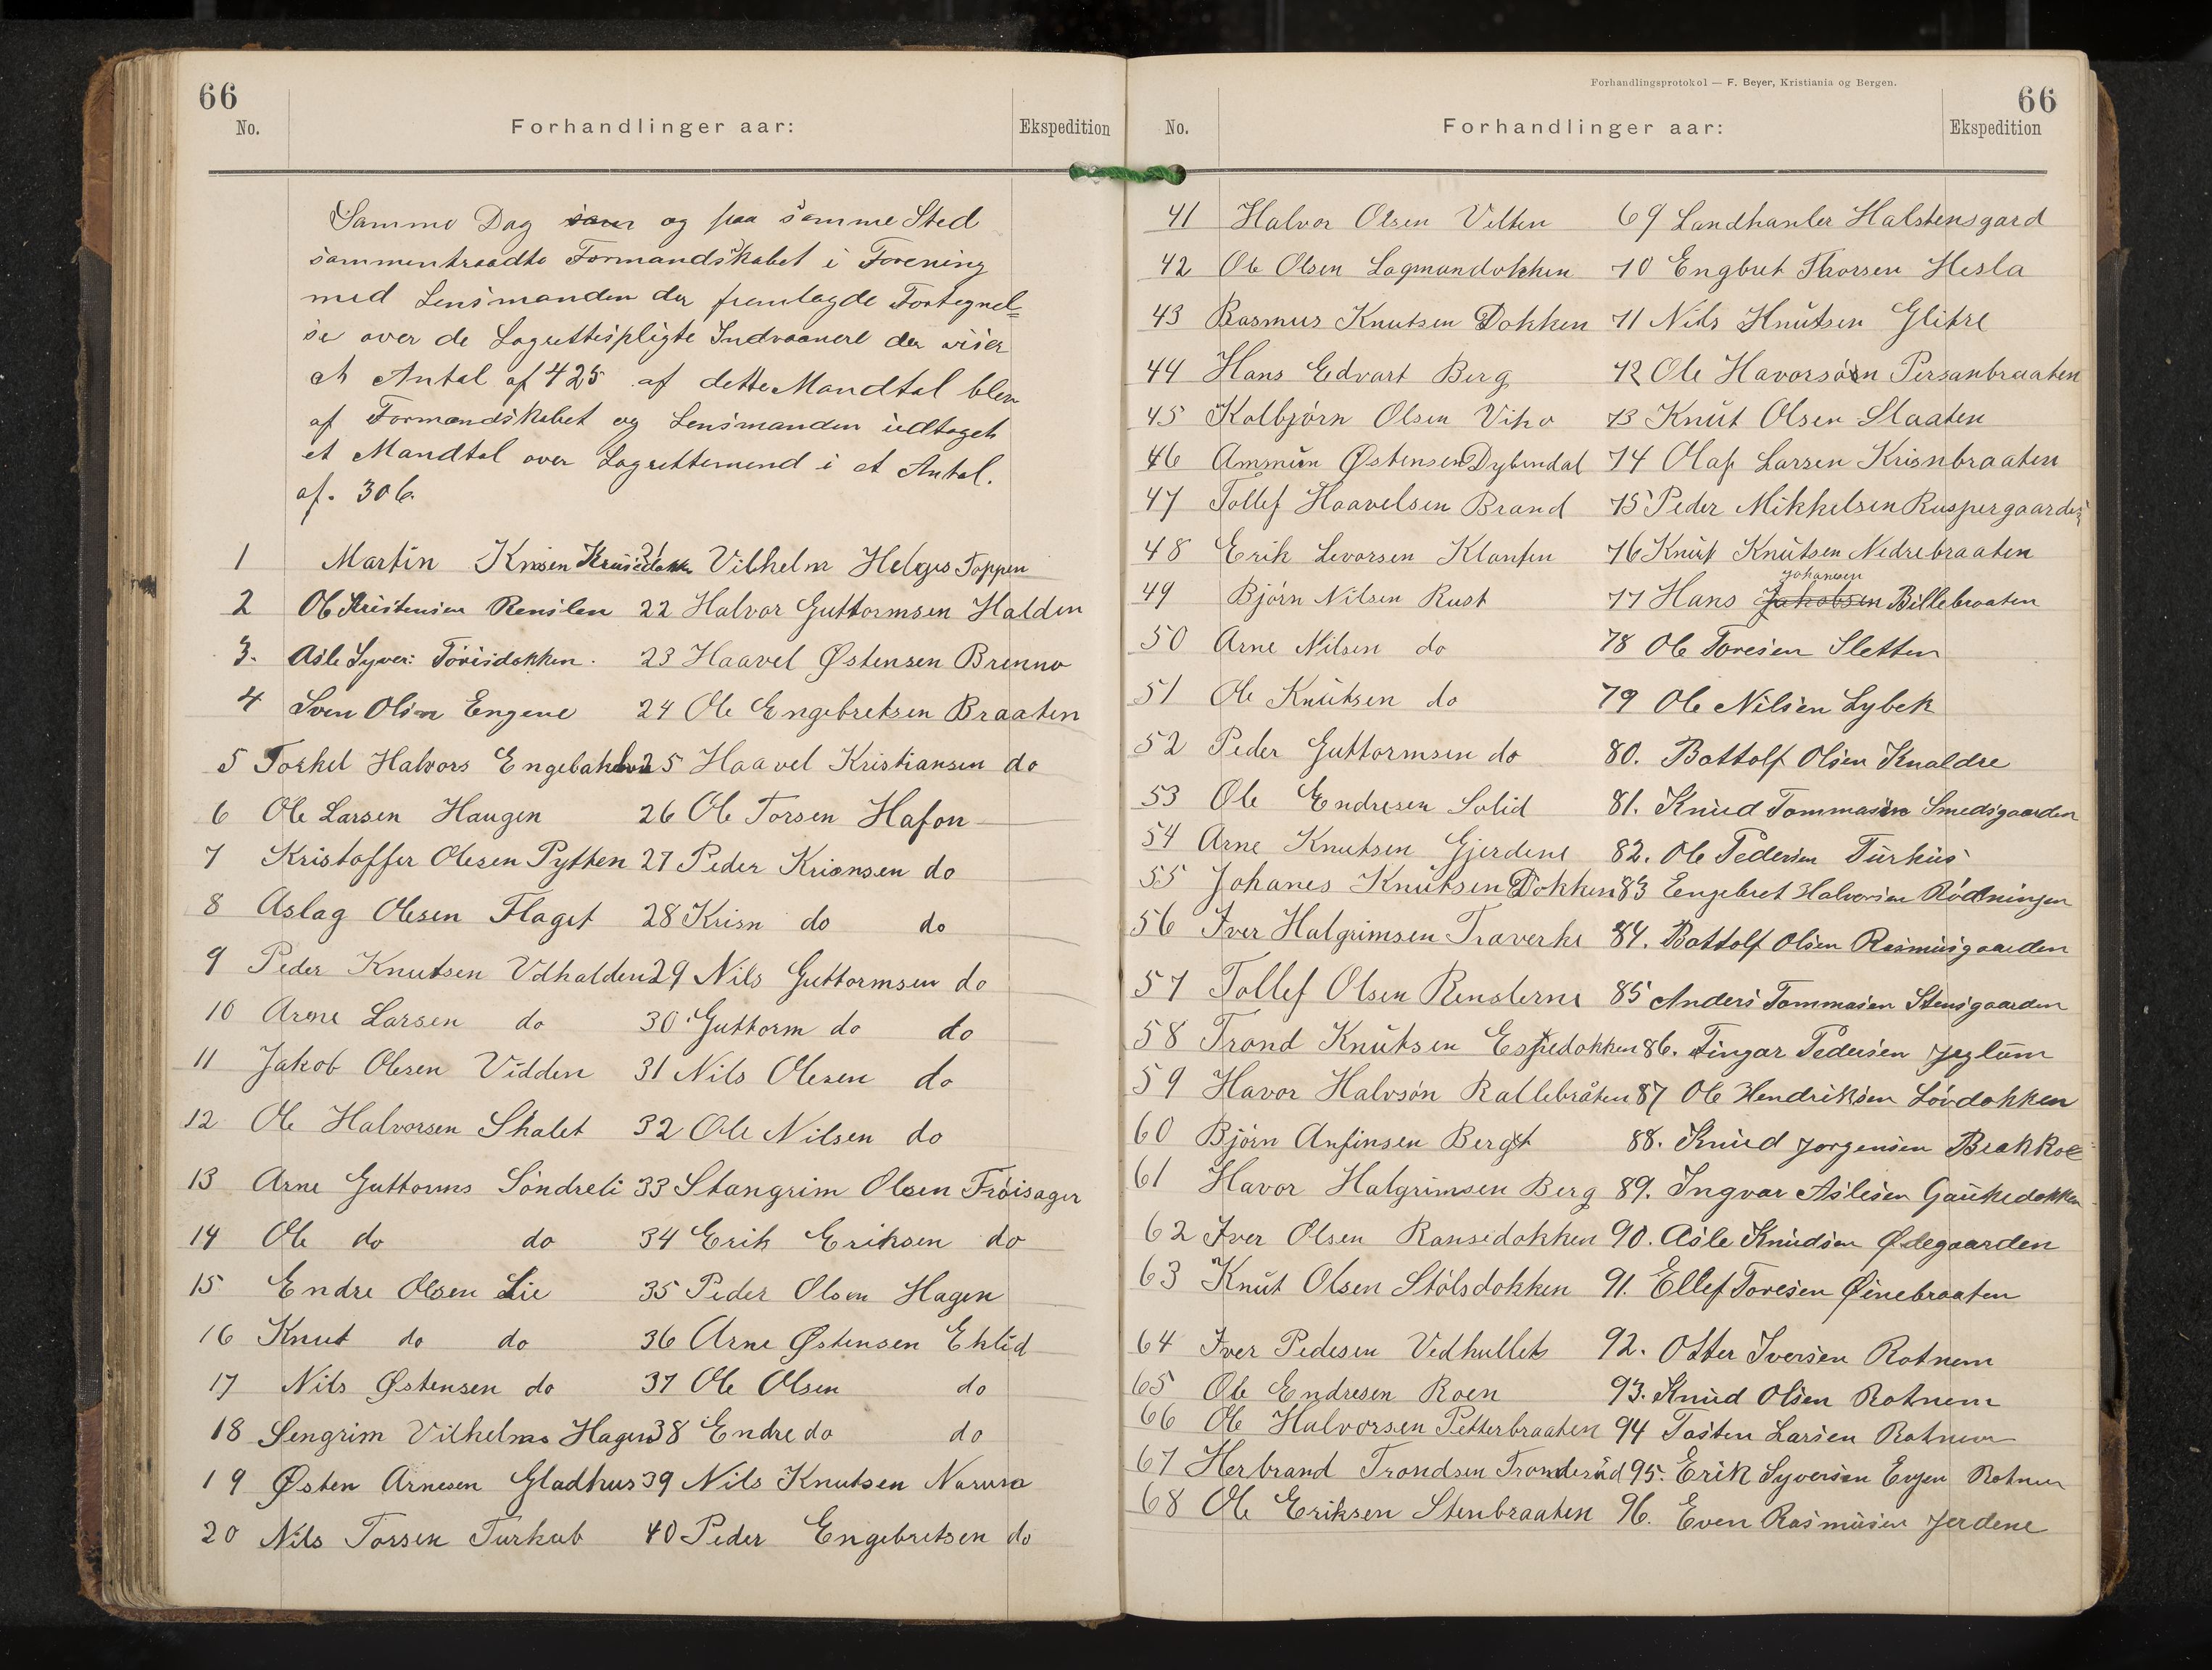 66
No.
Forhandlinger aar:
Ekspedition
Samme Dag og paa samme Sted
sammentraadte Formandskabet i Forening
med Lensmanden der fremlagde Fortegnel=
se over de Lagrettespligte Indvaanere der viser
et Antal af 425 af dette Mandtal blev
af Formandskabet og Lensmanden udtaget
et Mandtal over Lagrettemend i et Antal.
af. 306.
1 Martin 21 Vilhelm Helges Toppen
2 Ole Kristensen Renslen 22 Halvor Guttormsen Halden
3. Asle Syver: Torisdokken. 23 Haavel Østensen Brenno
4 Sven Olsen Engene 24 Ole Engebretsen Braaten
5 Torkel Halvors 25 Haavel Kristiansen do
6 Ole Larsen Haugen 26 Ole Torsen Hafon
7 Kristoffer Olesen Pytten 27 Peder Krisnsen do
8 Aslag Olesen Flaget 28 Krisn do do
9 Peder Knutsen Vdhalden 29 Nils Guttormsen do
10 Arne Larsen do 30 Guttorm do do
11 Jakob Olesen Vidden 31 Nils Olesen do
12 Ole Halvorsen Skalet 32 Ole Nilsen do
13 Arne Guttorms Söndreli 33 Stangrim Olsen Fröisager
14 Ole do do 34 Erik Eriksen do
15 Endre Olsen Lie 35 Peder Olsen Hagen
16 Knut do do 36 Arne Østensen Eklid
17 Nils Østensen do 37 Ole Olsen do
18 Sengrim Vilhelms Hagen 38 Endre do do
19 Østen Arnesen Gladhus 39 Nils Knutsen
20 Nils Torsen 40 Peder Engebretsen do
Forhandlingsprotokol — F. Beyer, Kristiania og Bergen.
66
No.
Forhandlinger aar:
Ekspedition
41 Halvor Olsen Velten 69 Landhanler Halstensgard
42 Ole Olsen Lagmandokken 70 Engbret Thorsen Hesla
43 Rasmus Knutsen Dokken 71 Nils Knutsen Glitre
44 Hans Edvart Berg 72 Ole Havorsön Persanbraaten
45 Kolbjörn Olsen 73 Knut Olsen Slaaten
46 Ammun Østensen Dybendal 74 Olaf Larsen Krisnbraaten
47 Tollef Haavelsen Brand 75 Peder Mikkelsen
48 Erik Levorsen Klanten 76 Knut Knutsen Nedrebraaten
49 Björn Nilsen Rust 77 Hans Jakobsen Johansen Billebraaten
50 Arne Nilsen do 78 Ole Toresen Sletten
51 Ole Knutsen do 79 Ole Nilsen Lybek
52 Peder Guttormsen do 80. Bottolf Olsen Knaldre
53 Ole Endresen Solid 81. Knud Tommasen Smedsgaarden
54 Arne Knutsen Gjerdene 82. Ole Pedersen Turhus
55 Johanes Knutsen Dokken 83 Eengebret Halvorsen Rödningen
56 Iver Halgrimsen Traverke 84. Bottolf Olsen Rasmusgaarden
57 Tollef Olsen Renslerne 85 Anders Tommasen Stensgaarden
58 Trond Knutsen Espedokken 86. Fingar Pedersen Jeglum
59 Havor Halvsön Rallebråten 87 Ole Hendriksen Lövdokken
60 Björn Anfinsen Berg 88. Knud Jorgensen
61 Havor Halgrimsen Berg 89. Ingvar Aslesen Gaukedokken
62 Iver Olsen Ransedokken 90. Asle Knudsen Ødegaarden
63 Knut Olsen Stölsdokken 91. Ellef Toresen Øinebraaten
64 Iver Pedesen Vedhullet 92. Otter Iversen Rotnem
65 Ole Endresen Roen 93. Knud Olsen Rotnem
66 Ole Halvorsen Petterbraaten 94 Tosten Larsen Rotnem
67 Herbrand Trondsen Tronderud 95. Erik Syversen Evjen Rotnem
68 Ole Eriksen Stenbraaten 96. Even Rasmusen Jerdene